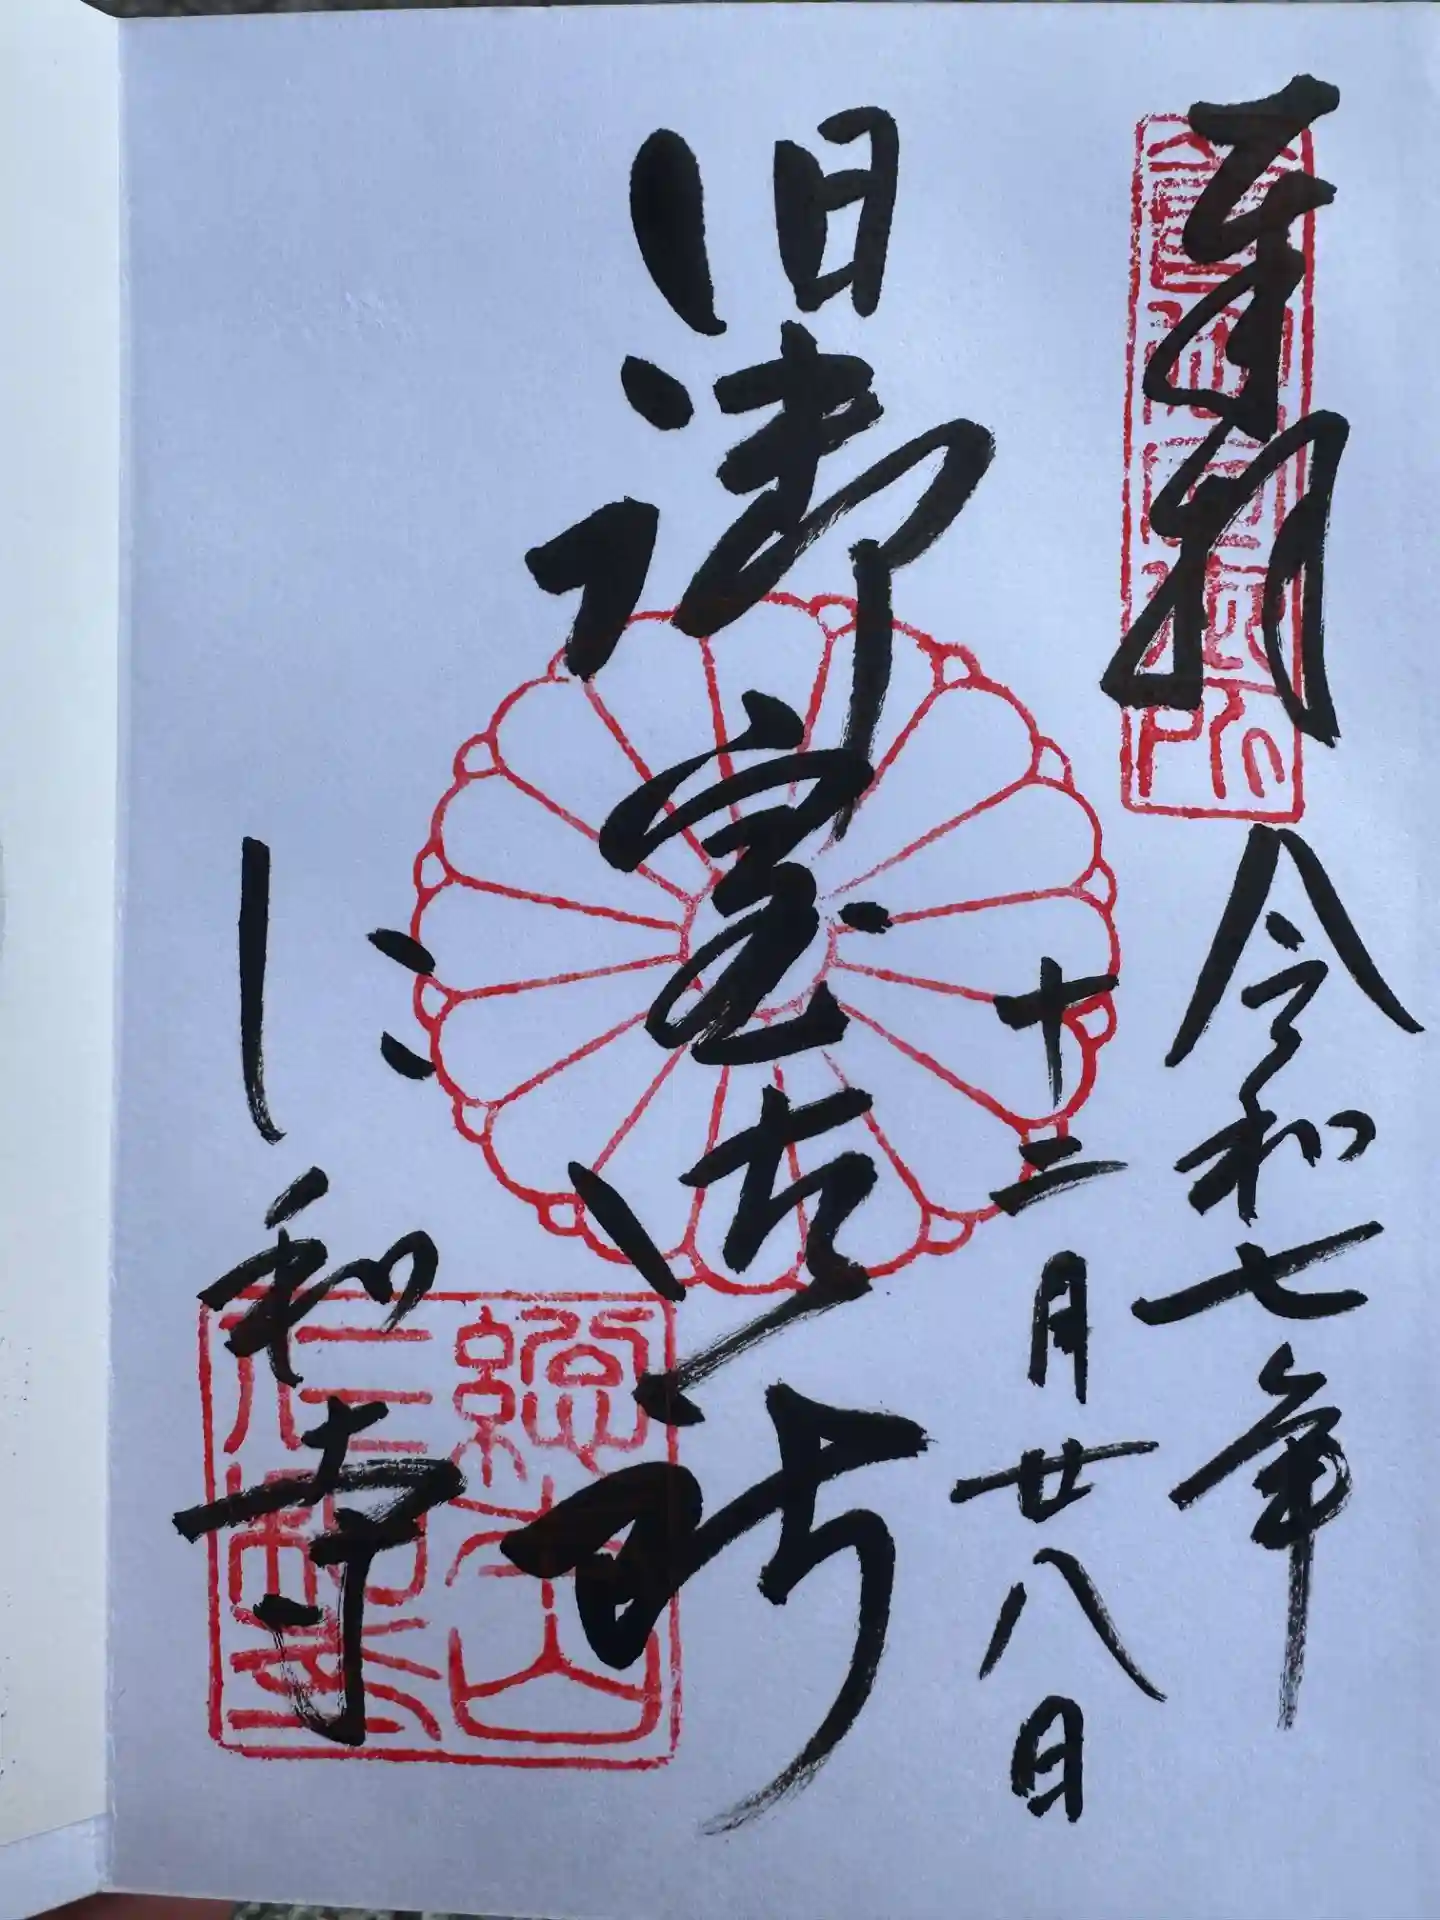 奉拝
令和七年
十二月廿八日
旧御室御所
仁和寺
總本山
仁和寺